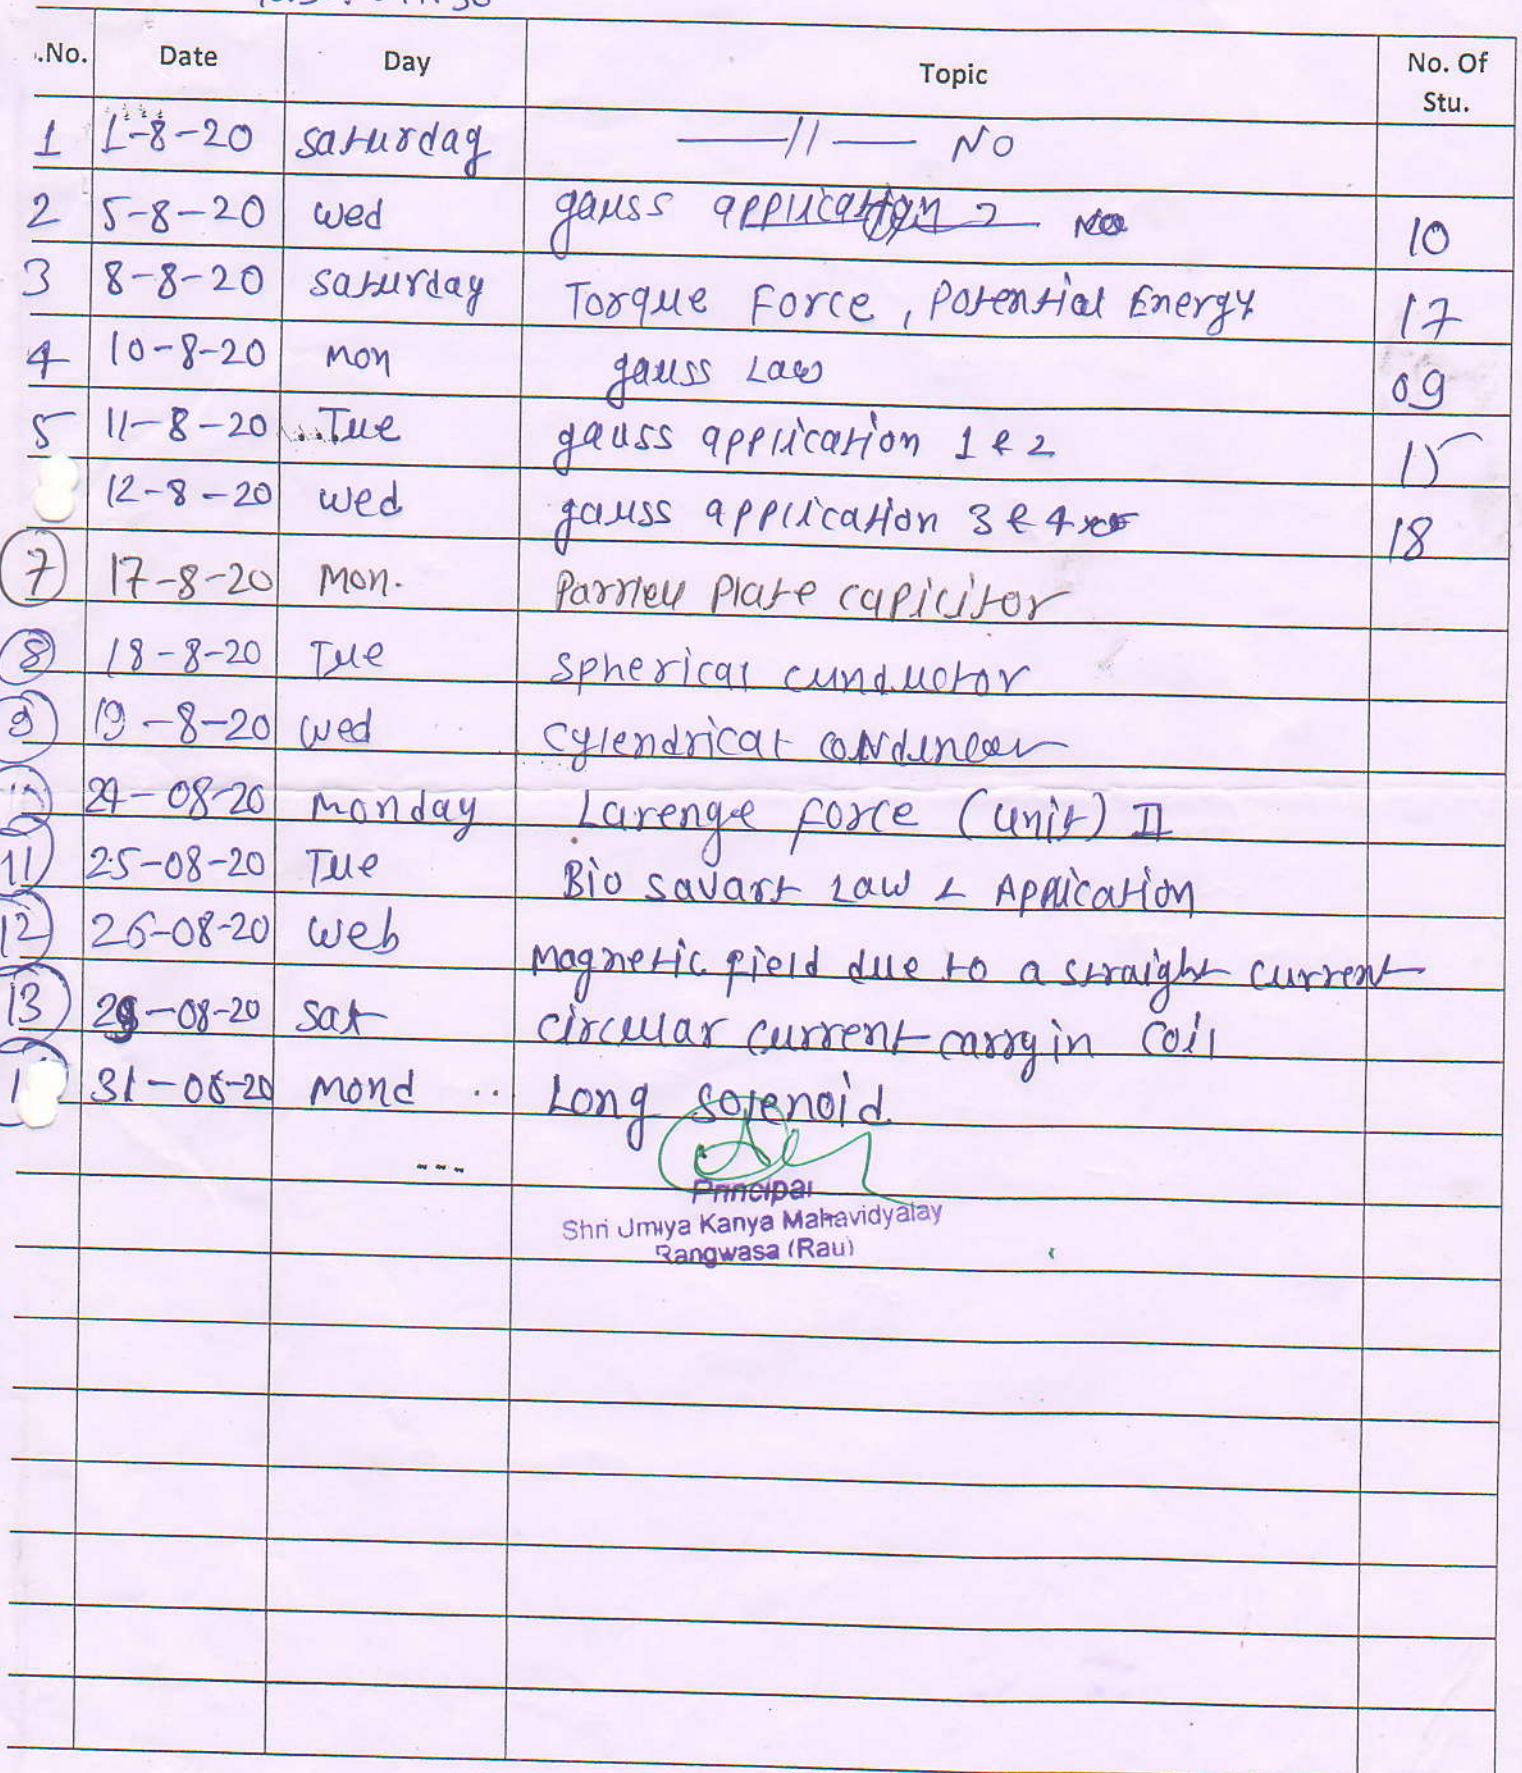 .No. Date Day Topic No. Of Stu.
1 1-8-20 saturday —//— NO
2 5-8-20 wed gauss application 10
3 8-8-20 saturday Torque Force, Potential Energy 17
4 10-8-20 mon gauss Law 09
5 11-8-20 Tue gauss application 1 & 2 15
12-8-20 wed gauss application 3 & 4 18
7 17-8-20 Mon. Parrlell Plate capicitor
8 18-8-20 Tue spherical cunductor
9 19-8-20 wed cylendrical
10 24-08-20 monday Larenge force (unit) II
11 25-08-20 Tue Bio savart Law & Application
12 26-08-20 web magnetic field due to a straight current
13 29-08-20 sat circular current carryin coil
1 31-08-20 mond Long solenoid
Principal
Shri Umiya Kanya Mahavidyalay
Rangwasa (Rau)